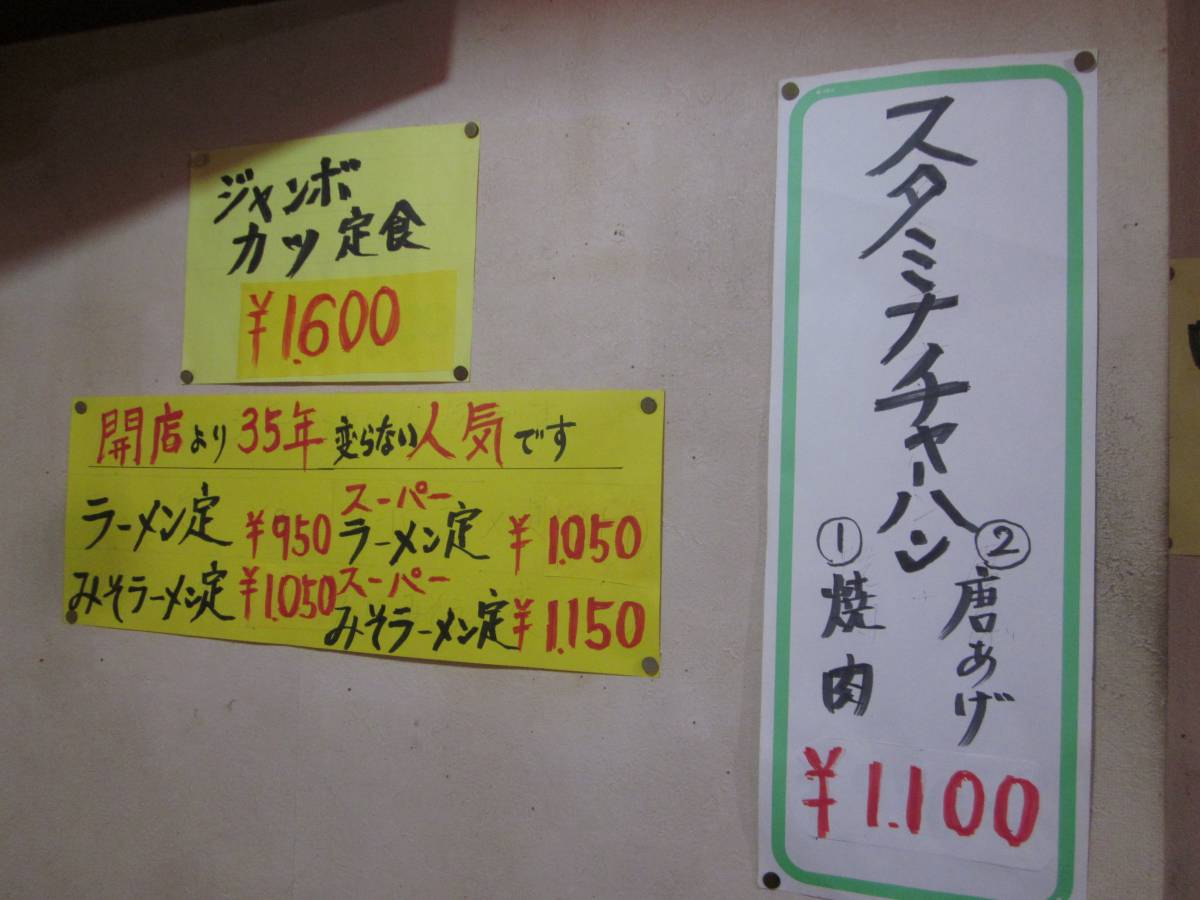 ジャンボ
カツ定食
¥1.600
開店より35年変らない人気です
ラーメン定 ¥950
スーパー
ラーメン定 ¥1.050
みそラーメン定 ¥1.050
スーパー
みそラーメン定 ¥1.150
スタミナチャーハン
① 焼肉
② 唐あげ
¥1.100